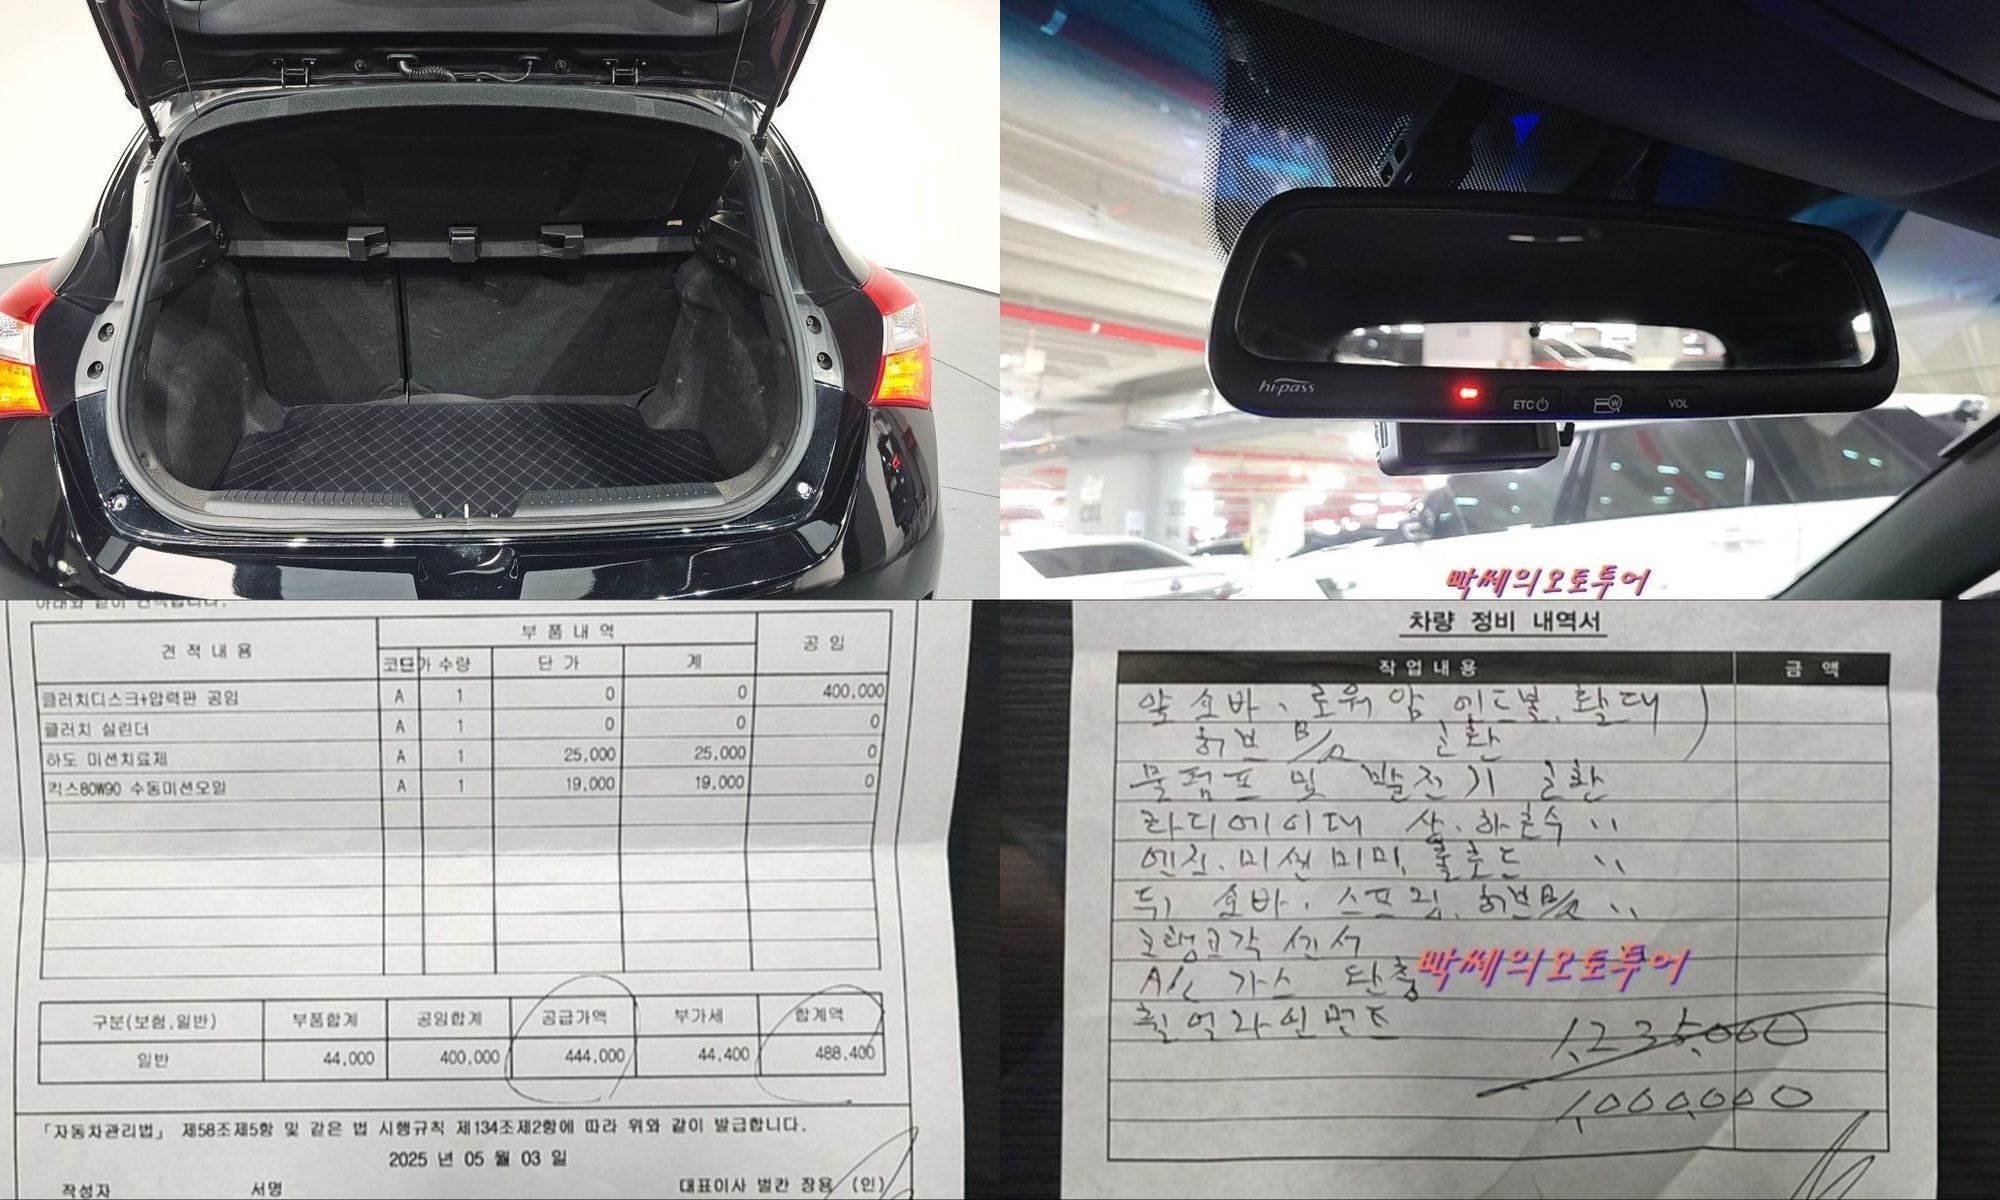 hi-pass
ETC
VOL
빡쎄의오토투어
견적내용
부품내역
공임
코드
수량
단가
계
클러치디스크+압력판 공임 A 1 0 0 400,000
클러치 실린더 A 1 0 0 0
하도 미션치료제 A 1 25,000 25,000 0
킥스80W90 수동미션오일 A 1 19,000 19,000 0
구분(보험,일반) 부품합계 공임합계 공급가액 부가세 합계액
일반 44,000 400,000 444,000 44,400 488,400
「자동차관리법」 제58조제5항 및 같은 법 시행규칙 제134조제2항에 따라 위와 같이 발급합니다.
2025 년 05 월 03 일
작성자 서명 대표이사 벌칸 장용 (인)
차량 정비 내역서
작업내용 금액
앞 쇼바. 로워암 엔드볼, 활대
허브 B/R 교환
물펌프 및 발전기 교환
라디에이터 상.하호수 〃
엔진.미션 미미, 롤로드 〃
뒤 쇼바. 스프링, 허브B/R 〃
크랭크각 센서
A/C 가스 단충
휠 얼라인먼트
빡쎄의오토투어
1,235,000
1,000,000